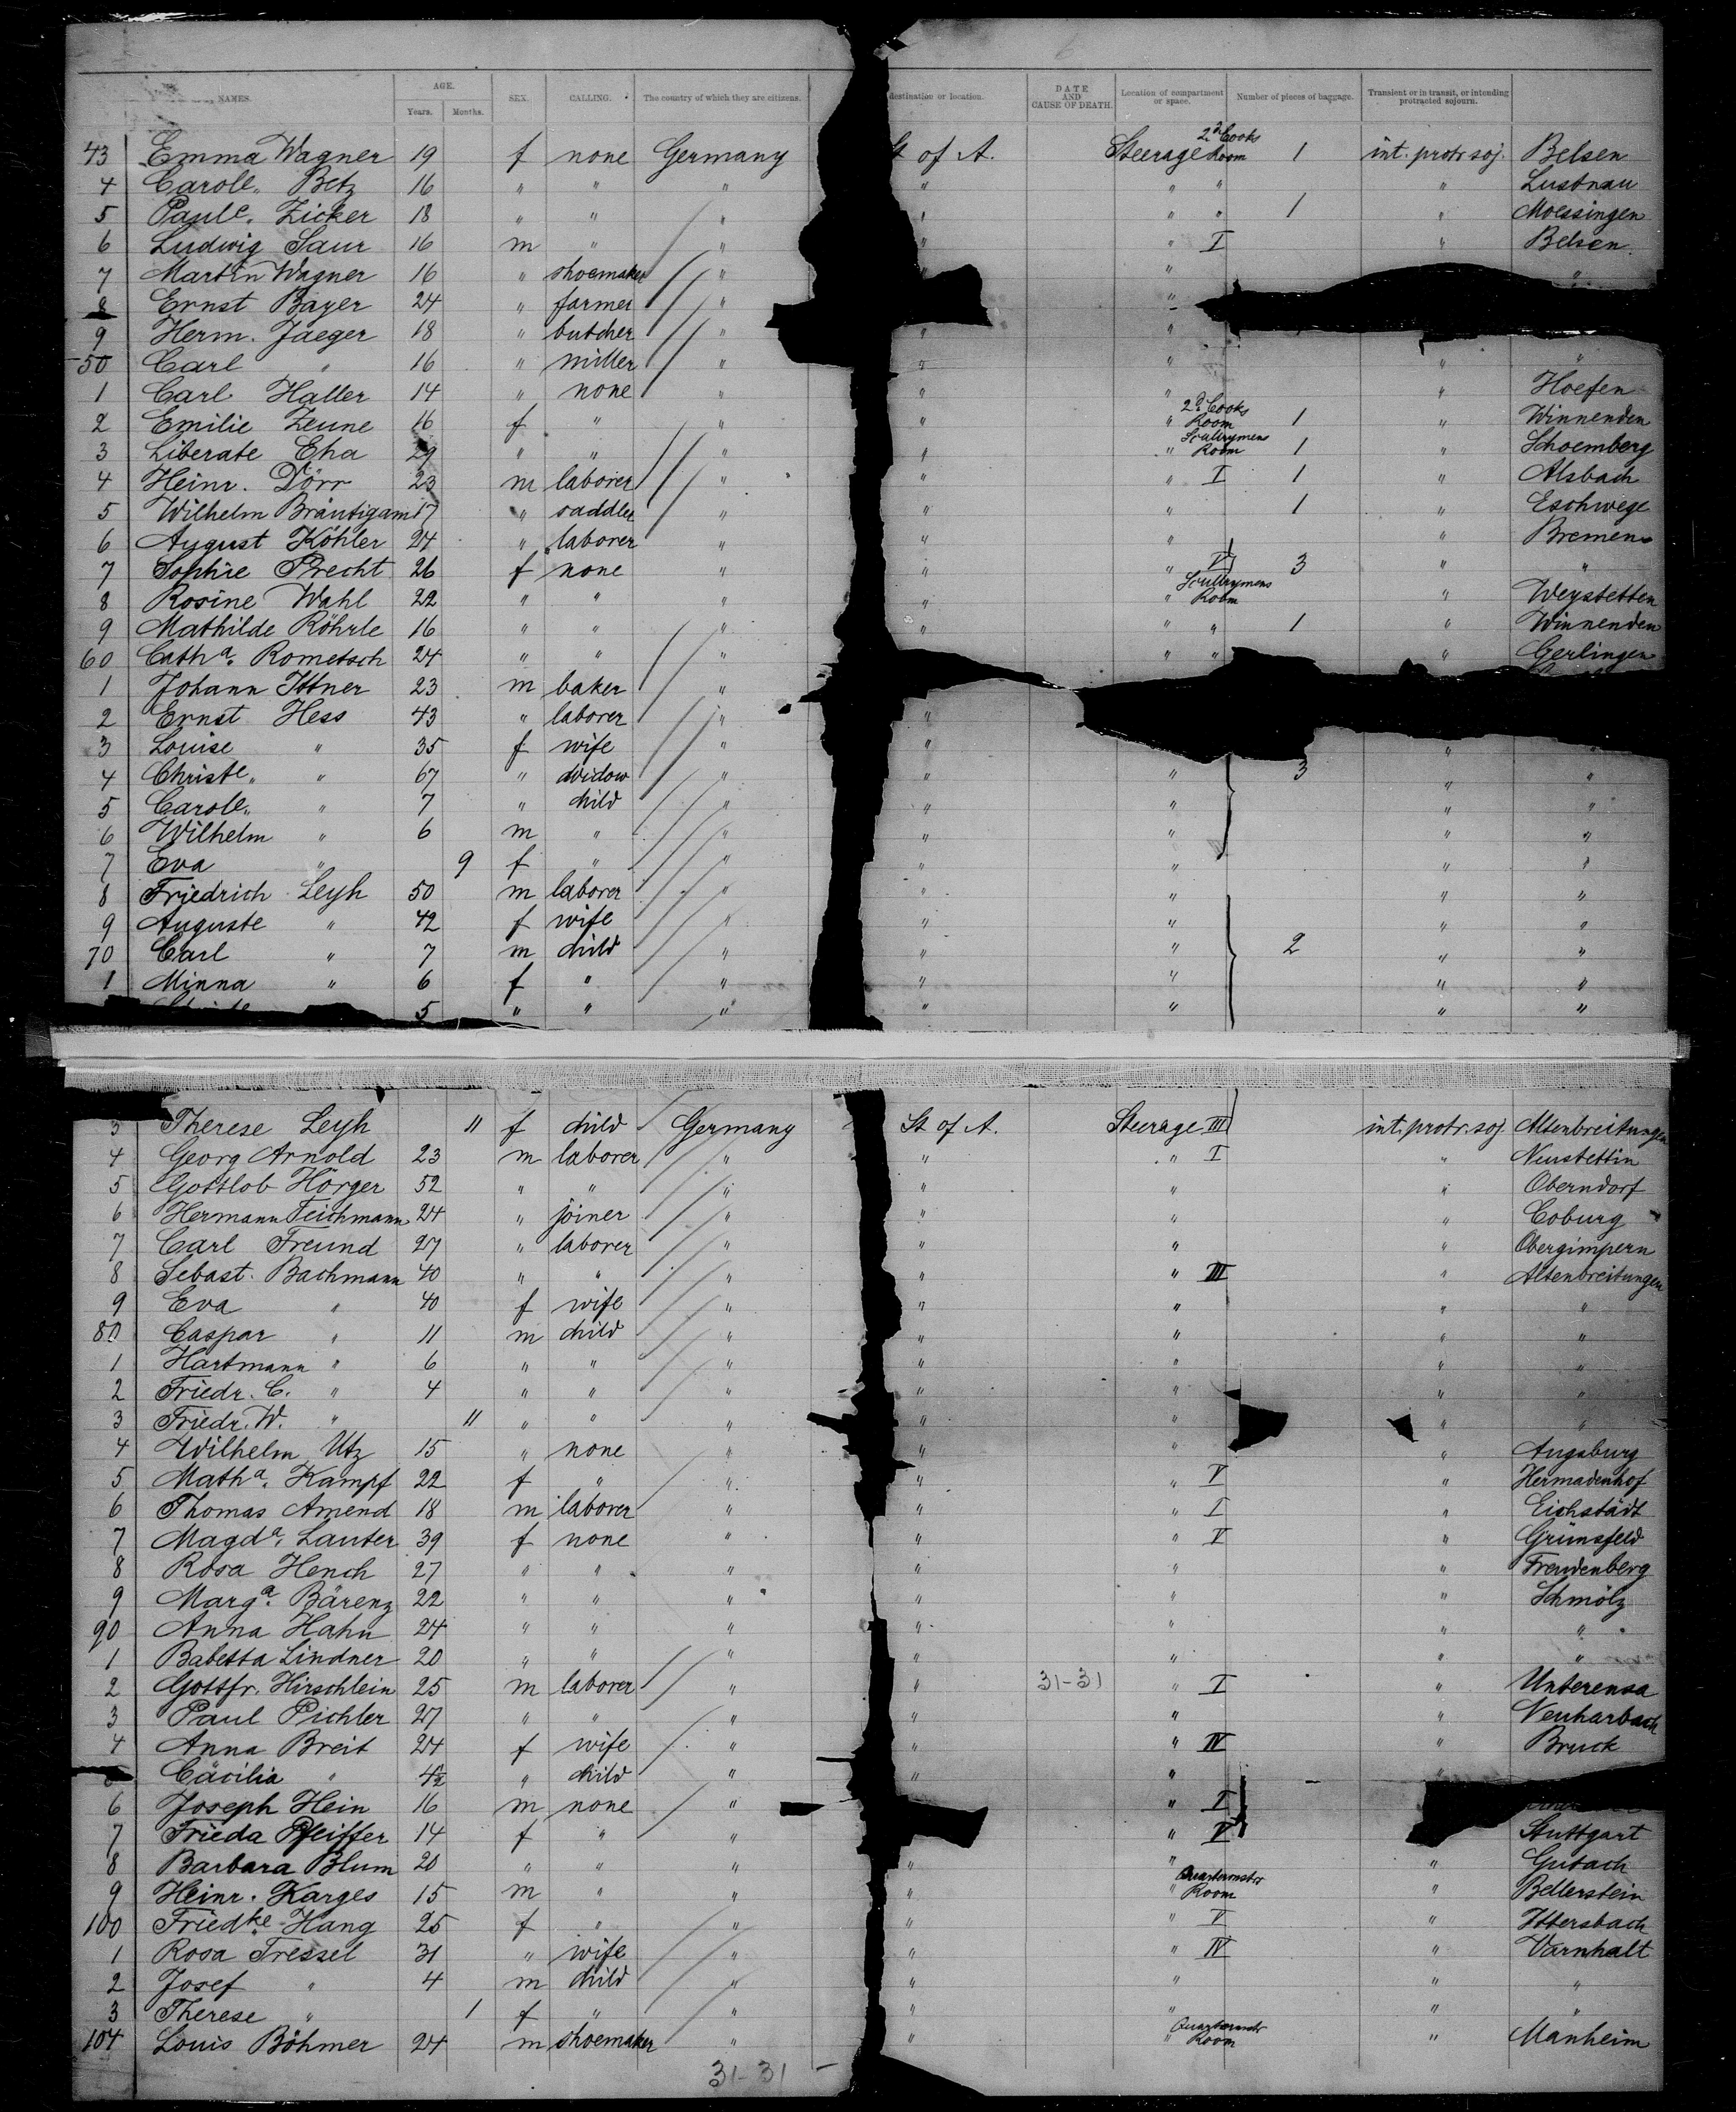 NAMES. AGE. Years. Months. SEX. CALLING. The country of which they are citizens. destination or location. DATE AND CAUSE OF DEATH. Location of compartment or space. Number of pieces of baggage. Transient or in transit, or intending protracted sojourn.
43 Emma Wagner 19 f none Germany St of A. Steerage 2d Cooks Room 1 int. protr. soj. Belsen
4 Carole. Betz 16 " " " " " " " Lustnau
5 Paule. Zicker 18 " " " " " " 1 " Moessingen
6 Ludwig Saur 16 m " " " " I " Belsen
7 Martin Wagner 16 " shoemaker " " " "
8 Ernst Bayer 24 " farmer " "
9 Herm. Jaeger 18 " butcher " " "
50 Carl " 16 " miller " " " " "
1 Carl Haller 14 " none " " " " Hoefen
2 Emilie Zeune 16 f " " " " 2d Cooks Room 1 " Winnenden
3 Liberate Eha 29 " " " " " Scullrymens Room 1 " Schoemberg
4 Heinr. Dörr 23 m laborer " " " I 1 " Alsbach
5 Wilhelm Bräutigam 17 " saddler " " " 1 " Eschwege
6 August Köhler 24 " laborer " " " Bremen
7 Sophie Precht 26 f none " " " V 3 " "
8 Rosine Wahl 22 " " " " " Scullrymens Room " Weystetten
9 Mathilde Röhrle 16 " " " " " " 1 " Winnenden
60 Catha. Rometsch 24 " " " " " " Gerlingen
1 Johann Ittner 23 m baker "
2 Ernst Hess 43 " laborer " "
3 Louise " 35 f wife " " " "
4 Christe. " 67 " widow " " " 3 " "
5 Carole. " 7 " child " " " " "
6 Wilhelm " 6 m " " " " " "
7 Eva " 9 f " " " " " "
8 Friedrich Leyh 50 m laborer " " " " "
9 Auguste " 42 f wife " " " " "
70 Carl " 7 m child " " " 2 " "
1 Minna " 6 f " " " " " "
5 " " " " " " "
3 Therese Leyh 11 f child Germany St of A. Steerage III int. protr. soj. Altenbreitungen
4 Georg Arnold 23 m laborer " " " I " Neustettin
5 Gottlob Hörger 52 " " " " " " Oberndorf
6 Hermann Teichmann 24 " joiner " " " " Coburg
7 Carl Freund 27 " laborer " " " " Obergimpern
8 Sebast. Bachmann 40 " " " " " III " Altenbreitungen
9 Eva " 40 f wife " " " " "
80 Caspar " 11 m child " " " " "
1 Hartmann " 6 " " " " " " "
2 Friedr. C. " 4 " " " " " " "
3 Friedr. W. " 11 " " " " " " "
4 Wilhelm Utz 15 " none " " " " Augsburg
5 Matha. Kampf 22 f " " " " V " Hermadenhof
6 Thomas Amend 18 m laborer " " " I " Eichstädt
7 Magda. Lauter 39 f none " " " V " Grünsfeld
8 Rosa Hench 27 " " " " " " Freudenberg
9 Marga. Bärenz 22 " " " " " " Schmölz
90 Anna Hahn 24 " " " " " " "
1 Babetta Lindner 20 " " " " " " "
2 Gottfr. Hirschlein 25 m laborer " " 31-31 " I " Unterensa
3 Paul Pichler 27 " " " " " " Neuharbach
4 Anna Breit 24 f wife " " " IV " Bruck
Cäcilia " " child " " " "
6 Joseph Hein 16 m none " " I
7 Frieda Pfeiffer 14 f " " " V Stuttgart
8 Barbara Blum 20 " " " " " " Gutach
9 Heinr. Karges 15 m " " " " Quartermstrs Room " Bellerstein
100 Friedke. Hang 25 f " " " " V " Ittersbach
1 Rosa Tressel 31 " wife " " " IV " Varnhalt
2 Josef " 4 m child " " " " "
3 Therese " 1 f " " " " " "
104 Louis Böhmer 24 m shoemaker " " " Quartermstr Room " Manheim
31-31